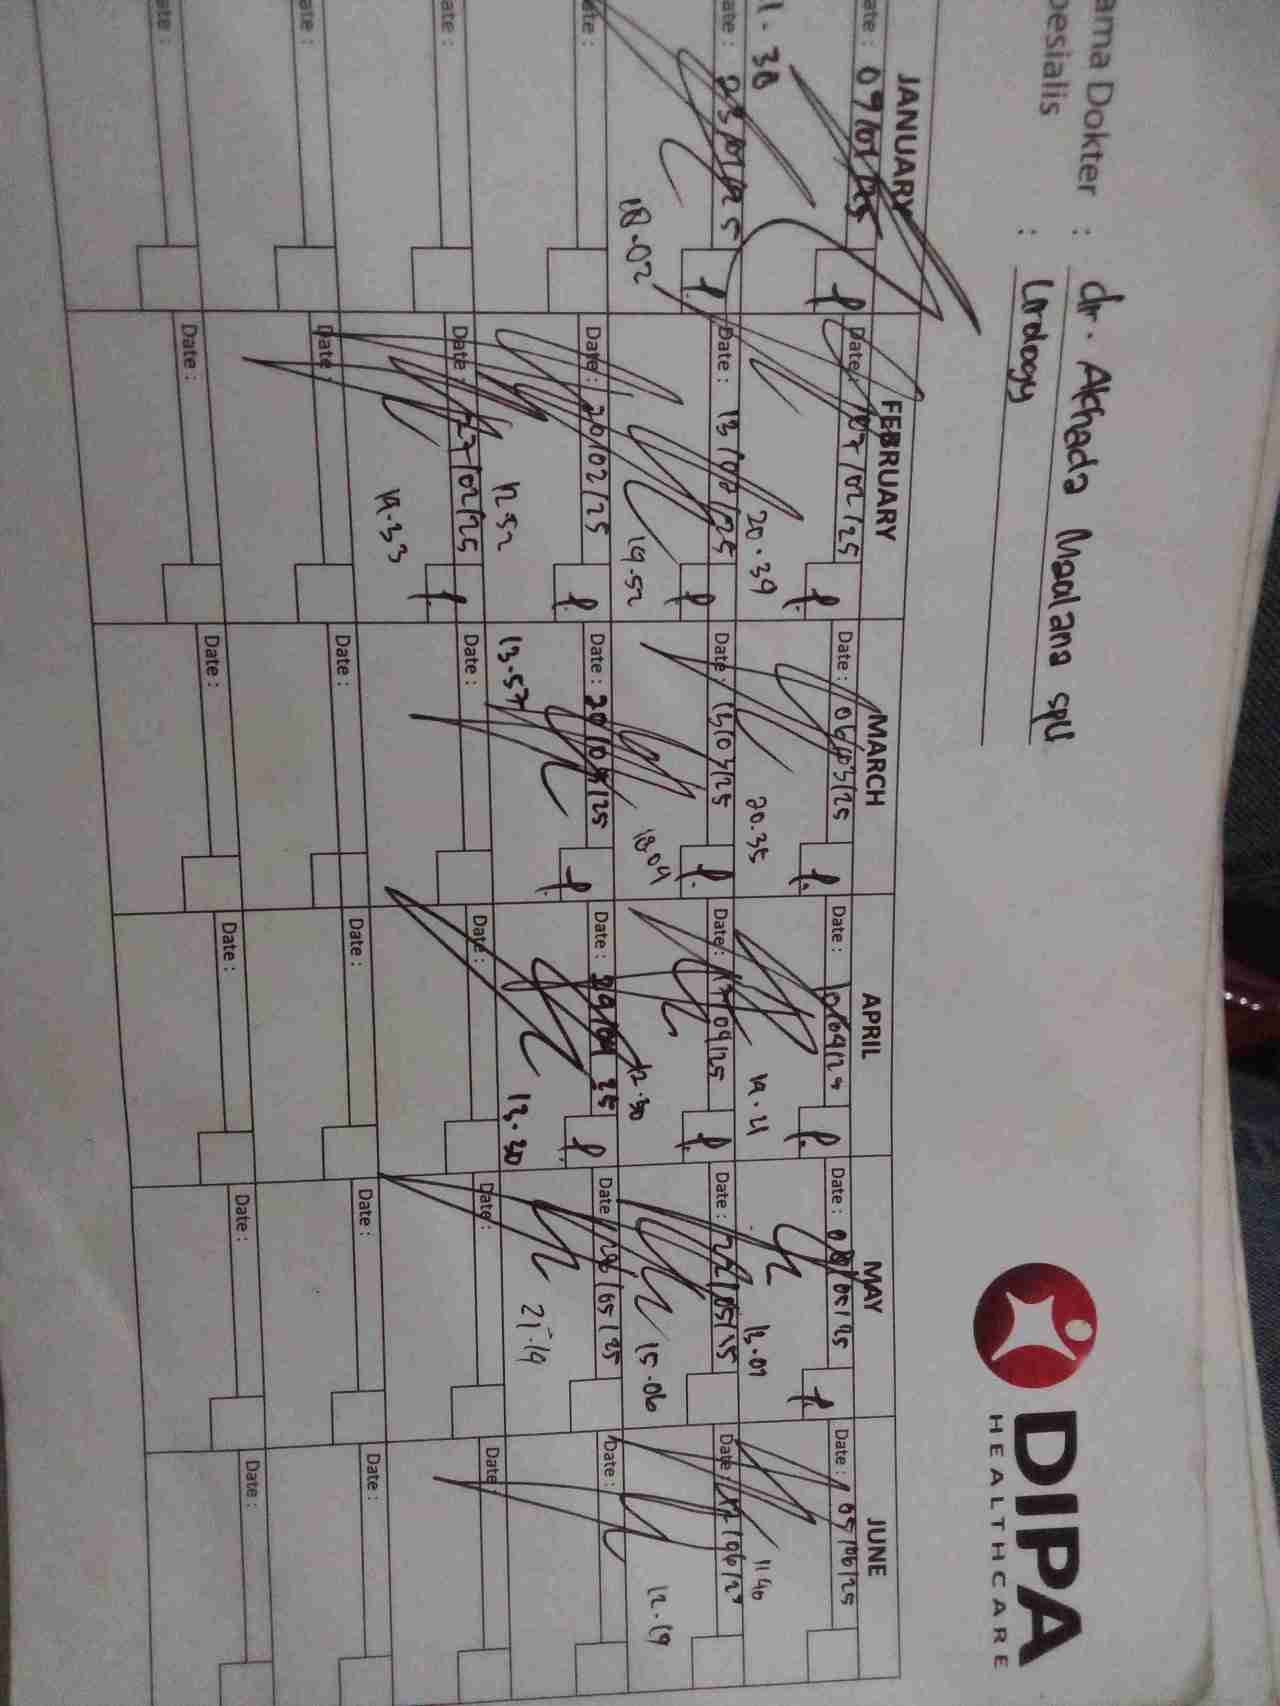 DIPA
HEALTHCARE
ama Dokter : dr. Akhada Maulana SpU
pesialis : Urology
JANUARY FEBRUARY MARCH APRIL MAY JUNE
ate : 09/01/25 Date : 07/02/25 Date : 06/03/25 Date : 10/04/25 Date : 08/05/25 Date : 05/06/25
20.39 20.35 13.01 11.40
ate : 23/01/25 Date : 13/02/25 Date : 13/03/25 Date : 17/04/25 Date : 22/05/25 Date : 12/06/25
18.02 19.52 18.04 12.30 15.06 12.19
ate : Date : 20/02/25 Date : 20/03/25 Date : 29/04/25 Date : 28/05/25 Date :
12.52 13.57 13.30 21.19
ate : Date : 27/02/25 Date : Date : Date : Date :
19.33
ate : Date : Date : Date : Date : Date :
ate : Date : Date : Date : Date : Date :